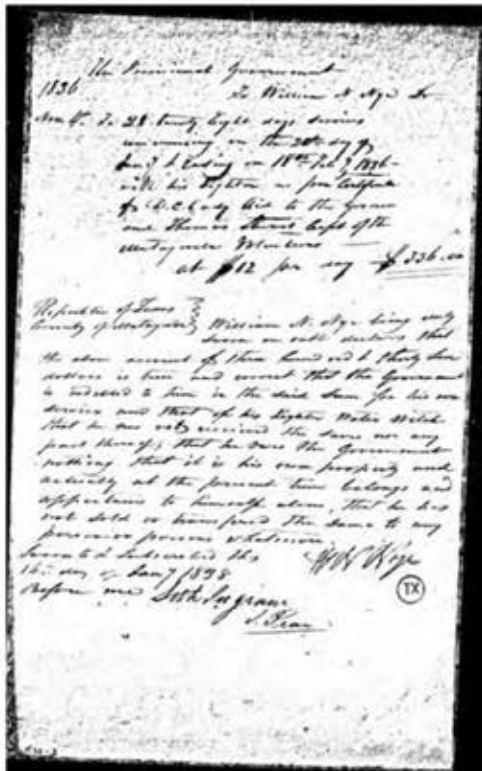 The Provisional Government
1836 To William N. Nye Dr
To 28 twenty Eight days service
commencing on the 20th day of
Jany & Ending on 18th Feby 1836
with his Lighter as per Certificate
of D. C. Cady Aid to the
and Thomas Stewart Capt of the
Matagorda Volunteers
at $12 per day $336.00
Republic of Texas
County of Matagorda William N. Nye being duly
sworn on oath declares that
the above account of three hundred & thirty six
dollars is true and correct that the Government
is indebted to him in the said sum for his own
service and that of his Lighter Water Witch
that he has not received the same nor any
part thereof, that he owes the Government
nothing that it is his own property and
actually at the present time belongs and
appertains to himself alone, that he has
not sold or transfered the same to any
person or persons whatsoever
Sworn to & Subscribed this W N Nye
16th day of Jany 1838
Before me Seth Ingram
TX